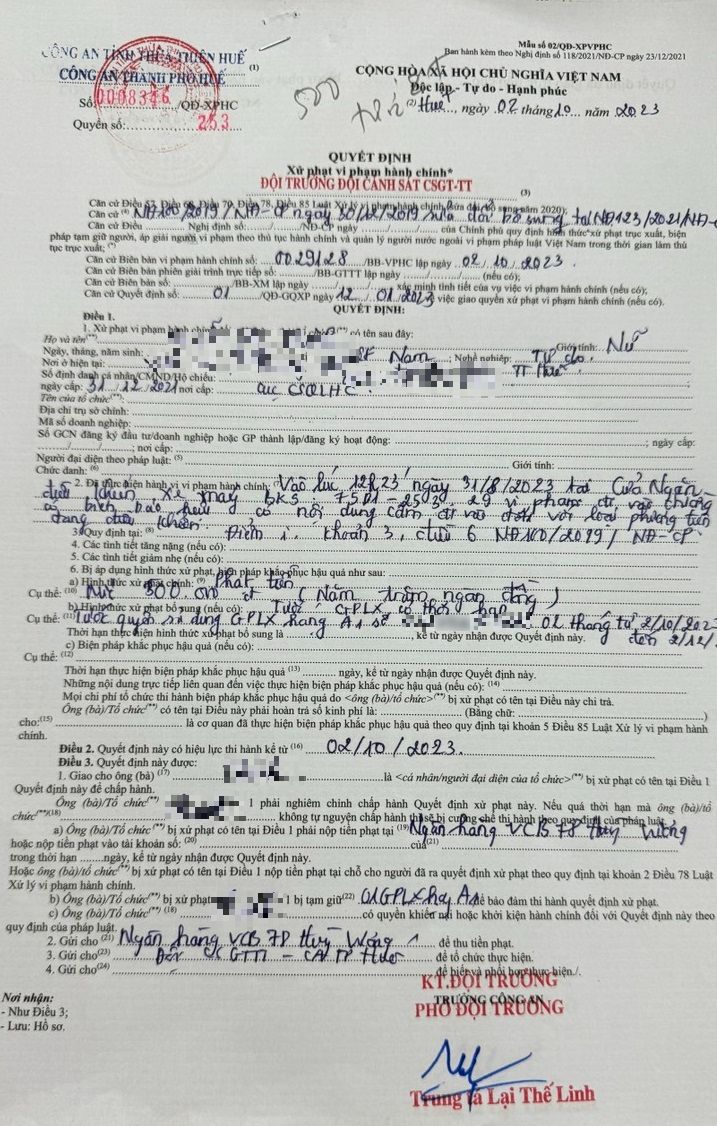 Mẫu số 02/QĐ-XPVPHC
Ban hành kèm theo Nghị định số 118/2021/NĐ-CP ngày 23/12/2021
CÔNG AN TỈNH THỪA THIÊN HUẾ (1)
CÔNG AN THÀNH PHỐ HUẾ
CỘNG HÒA XÃ HỘI CHỦ NGHĨA VIỆT NAM
Độc lập - Tự do - Hạnh phúc
Số: 0008376 /QĐ-XPHC
Quyển số: 253
500
(2) Huế, ngày 02 tháng 10 năm 2023
QUYẾT ĐỊNH
Xử phạt vi phạm hành chính*
ĐỘI TRƯỞNG ĐỘI CẢNH SÁT CSGT-TT (3)
Căn cứ Điều 57, Điều 68, Điều 70, Điều 78, Điều 85 Luật Xử lý vi phạm hành chính năm 2020);
Căn cứ (4) NĐ100/2019/NĐ-CP ngày 30/12/2019 sửa đổi bổ sung tại NĐ123/2021/NĐ-C
Căn cứ Điều Nghị định số: /NĐ-CP ngày của Chính phủ quy định hình thức xử phạt trục xuất, biện
pháp tạm giữ người, áp giải người vi phạm theo thủ tục hành chính và quản lý người nước ngoài vi phạm pháp luật Việt Nam trong thời gian làm thủ
tục trục xuất; (*)
Căn cứ Biên bản vi phạm hành chính số: 0029128 /BB-VPHC lập ngày 02/10/2023
Căn cứ Biên bản phiên giải trình trực tiếp số: /BB-GTTT lập ngày (nếu có);
Căn cứ Biên bản số: /BB-XM lập ngày xác minh tình tiết của vụ việc vi phạm hành chính (nếu có);
Căn cứ Quyết định số: 01 /QĐ-GQXP ngày 12/01/2023 việc giao quyền xử phạt vi phạm hành chính (nếu có).
QUYẾT ĐỊNH:
Điều 1.
1. Xử phạt vi phạm hành chính (**) có tên sau đây:
Họ và tên(**): Giới tính: Nữ
Ngày, tháng, năm sinh: Nam; Nghề nghiệp: Tự do.
Nơi ở hiện tại: TT Huế
Số định danh cá nhân/CMND/Hộ chiếu:
ngày cấp: 31/12/2021 nơi cấp: cục CSQLHC
Tên của tổ chức(**):
Địa chỉ trụ sở chính:
Mã số doanh nghiệp:
Số GCN đăng ký đầu tư/doanh nghiệp hoặc GP thành lập/đăng ký hoạt động: ; ngày cấp:
; nơi cấp:
Người đại diện theo pháp luật: (5) Giới tính:
Chức danh: (6)
2. Đã thực hiện hành vi vi phạm hành chính: Vào lúc 12h23 ngày 31/8/2023 tại Cửa Ngăn
điều khiển xe máy BKS 75D1-253.29 vi phạm đi vào đường
có biển báo hiệu có nội dung cấm đi vào đối với loại phương tiện
đang điều khiển.
3. Quy định tại: (8) Điểm i, khoản 3, điều 6 NĐ100/2019/NĐ-CP
4. Các tình tiết tăng nặng (nếu có):
5. Các tình tiết giảm nhẹ (nếu có):
6. Bị áp dụng hình thức xử phạt, biện pháp khắc phục hậu quả như sau:
a) Hình thức xử phạt chính: (9) Phạt tiền
Cụ thể: (10) Mức 500.000 đ (Năm trăm ngàn đồng)
b) Hình thức xử phạt bổ sung (nếu có): Tước GPLX có thời hạn
Cụ thể: (11) Tước quyền sử dụng GPLX hạng A1 số 02 tháng từ 2/10/202
đến 2/12/
Thời hạn thực hiện hình thức xử phạt bổ sung là , kể từ ngày nhận được Quyết định này.
c) Biện pháp khắc phục hậu quả (nếu có):
Cụ thể: (12)
Thời hạn thực hiện biện pháp khắc phục hậu quả (13) ngày, kể từ ngày nhận được Quyết định này.
Những nội dung trực tiếp liên quan đến việc thực hiện biện pháp khắc phục hậu quả (nếu có): (14)
Mọi chi phí tổ chức thi hành biện pháp khắc phục hậu quả do <ông (bà)/tổ chức>(**) bị xử phạt có tên tại Điều này chi trả.
Ông (bà)/Tổ chức(**) có tên tại Điều này phải hoàn trả số kinh phí là: (Bằng chữ: )
cho:(15) là cơ quan đã thực hiện biện pháp khắc phục hậu quả theo quy định tại khoản 5 Điều 85 Luật Xử lý vi phạm hành
chính.
Điều 2. Quyết định này có hiệu lực thi hành kể từ (16) 02/10/2023.
Điều 3. Quyết định này được:
1. Giao cho ông (bà) (17) là <cá nhân/người đại diện của tổ chức>(**) bị xử phạt có tên tại Điều 1
Quyết định này để chấp hành.
Ông (bà)/Tổ chức(**) 1 phải nghiêm chỉnh chấp hành Quyết định xử phạt này. Nếu quá thời hạn mà ông (bà)/tổ
chức(**)(18) không tự nguyện chấp hành thì sẽ bị cưỡng chế thi hành theo quy định của pháp luật.
a) Ông (Bà)/Tổ chức(**) bị xử phạt có tên tại Điều 1 phải nộp tiền phạt tại (19) Ngân hàng VCB 78 Hùng Vương
hoặc nộp tiền vào tài khoản số: (20) của(21)
trong thời hạn ngày, kể từ ngày nhận được Quyết định này.
Hoặc ông (bà)/tổ chức(**) bị xử phạt có tên tại Điều 1 nộp tiền phạt tại chỗ cho người đã ra quyết định xử phạt theo quy định tại khoản 2 Điều 78 Luật
Xử lý vi phạm hành chính.
b) Ông (Bà)/Tổ chức(**) bị xử phạt 1 bị tạm giữ(22) 01GPLX hạng A1 để bảo đảm thi hành quyết định xử phạt.
c) Ông (Bà)/Tổ chức(**) (18) có quyền khiếu nại hoặc khởi kiện hành chính đối với Quyết định này theo
quy định của pháp luật.
2. Gửi cho (21) Ngân hàng VCB 78 Hùng Vương để thu tiền phạt.
3. Gửi cho(23) Đội CSGTTT - CA TP Huế để tổ chức thực hiện.
4. Gửi cho(24) để biết và phối hợp thực hiện./.
Nơi nhận:
- Như Điều 3;
- Lưu: Hồ sơ.
KT.ĐỘI TRƯỞNG
TRƯỞNG CÔNG AN
PHÓ ĐỘI TRƯỞNG
Trung tá Lại Thế Linh